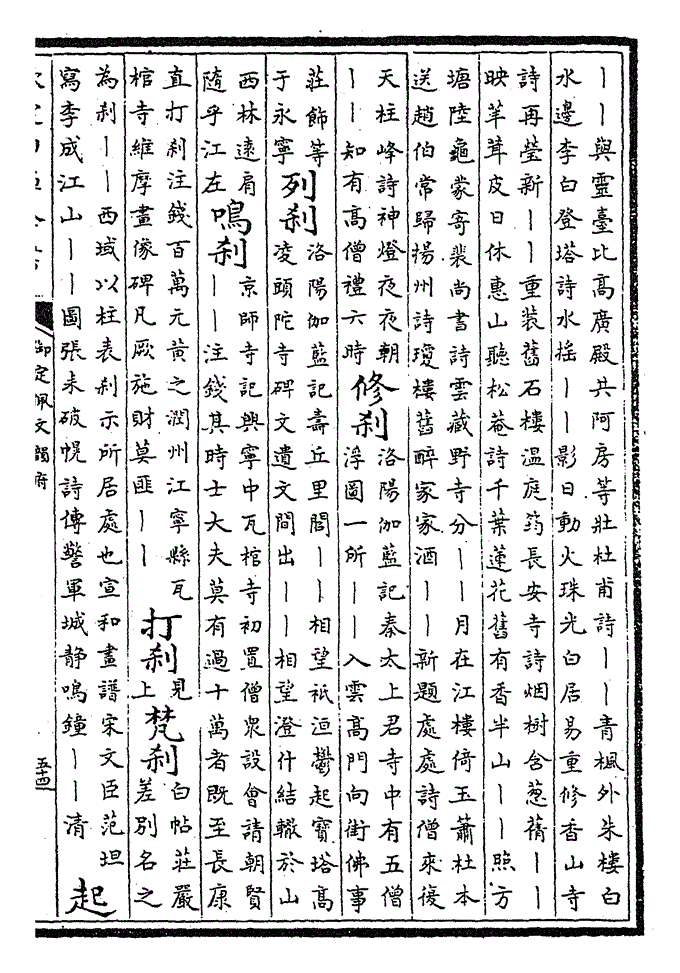 丨丨與靈臺比高廣殿共阿房等壯杜甫詩丨丨青楓外朱樓白
水邊李白登塔詩水搖丨丨影日動火珠光白居易重修香山寺
詩再瑩新丨丨重裝舊石樓溫庭筠長安寺詩烟樹含葱蒨丨丨
映芊茸皮日休惠山聽松菴詩千葉蓮花舊有香半山丨丨照方
塘陸龜蒙寄裴尚書詩雲藏野寺分丨丨月在江樓倚玉簫杜本
送趙伯常歸揚州詩瓊樓舊醉家家酒丨丨新題處處詩僧來復
天柱峰詩神燈夜夜朝
丨丨知有高僧禮六時
修刹
洛陽伽藍記秦太上君寺中有五僧
浮圖一所丨丨入雲高門向街佛事
莊飾等
于永寧
列刹
洛陽伽藍記壽丘里閭丨丨相望祇洹鬱起寶塔高
凌頭陀寺碑文遺文間出丨丨相望澄什結轍於山
西林遠肩
隨乎江左
鳴刹
京師寺記興寧中瓦棺寺初置僧衆設會請朝賢
丨丨注錢其時士大夫莫有過十萬者既至長康
直打刹注錢百萬元黄之潤州江寧縣瓦
棺寺維摩畫像碑凡厥施財莫匪丨丨
打刹
見
上
梵刹
白帖莊嚴
差別名之
為刹丨丨西域以柱表刹示所居處也宣和畫譜宋文臣范坦
寫李成江山丨丨圖張耒破幌詩傳警軍城靜鳴鐘丨丨清
起
御定佩文韻府
五十四